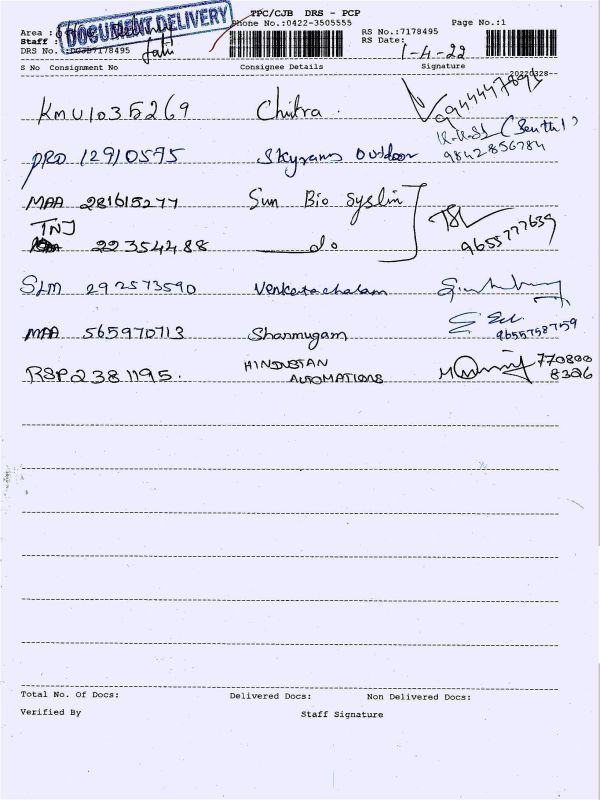 TPC/CJB DRS - PCP
DOCUMENT DELIVERY
Phone No.:0422-3505555
Page No.:1
Area :
Staff :
RS No.:7178495
DRS No. :DCJB7178495
RS Date:
1-4-22
S No Consignment No
Consignee Details
Signature
20220328
KMU1035269 Chitra. 9944447895
PRD 12910595 Skyrams Outdoor K.K.S1 (Senthil) 9842856784
MAA 281615277 Sun Bio Syslin
TNJ 22354488 do 9655777639
SLM 292573590 Venketachalam
MAA 565970713 Shanmugam 9655758759
RSP2381195. HINDUSTAN AUTOMATIONS 770800 8306
Total No. Of Docs:
Delivered Docs:
Non Delivered Docs:
Verified By
Staff Signature